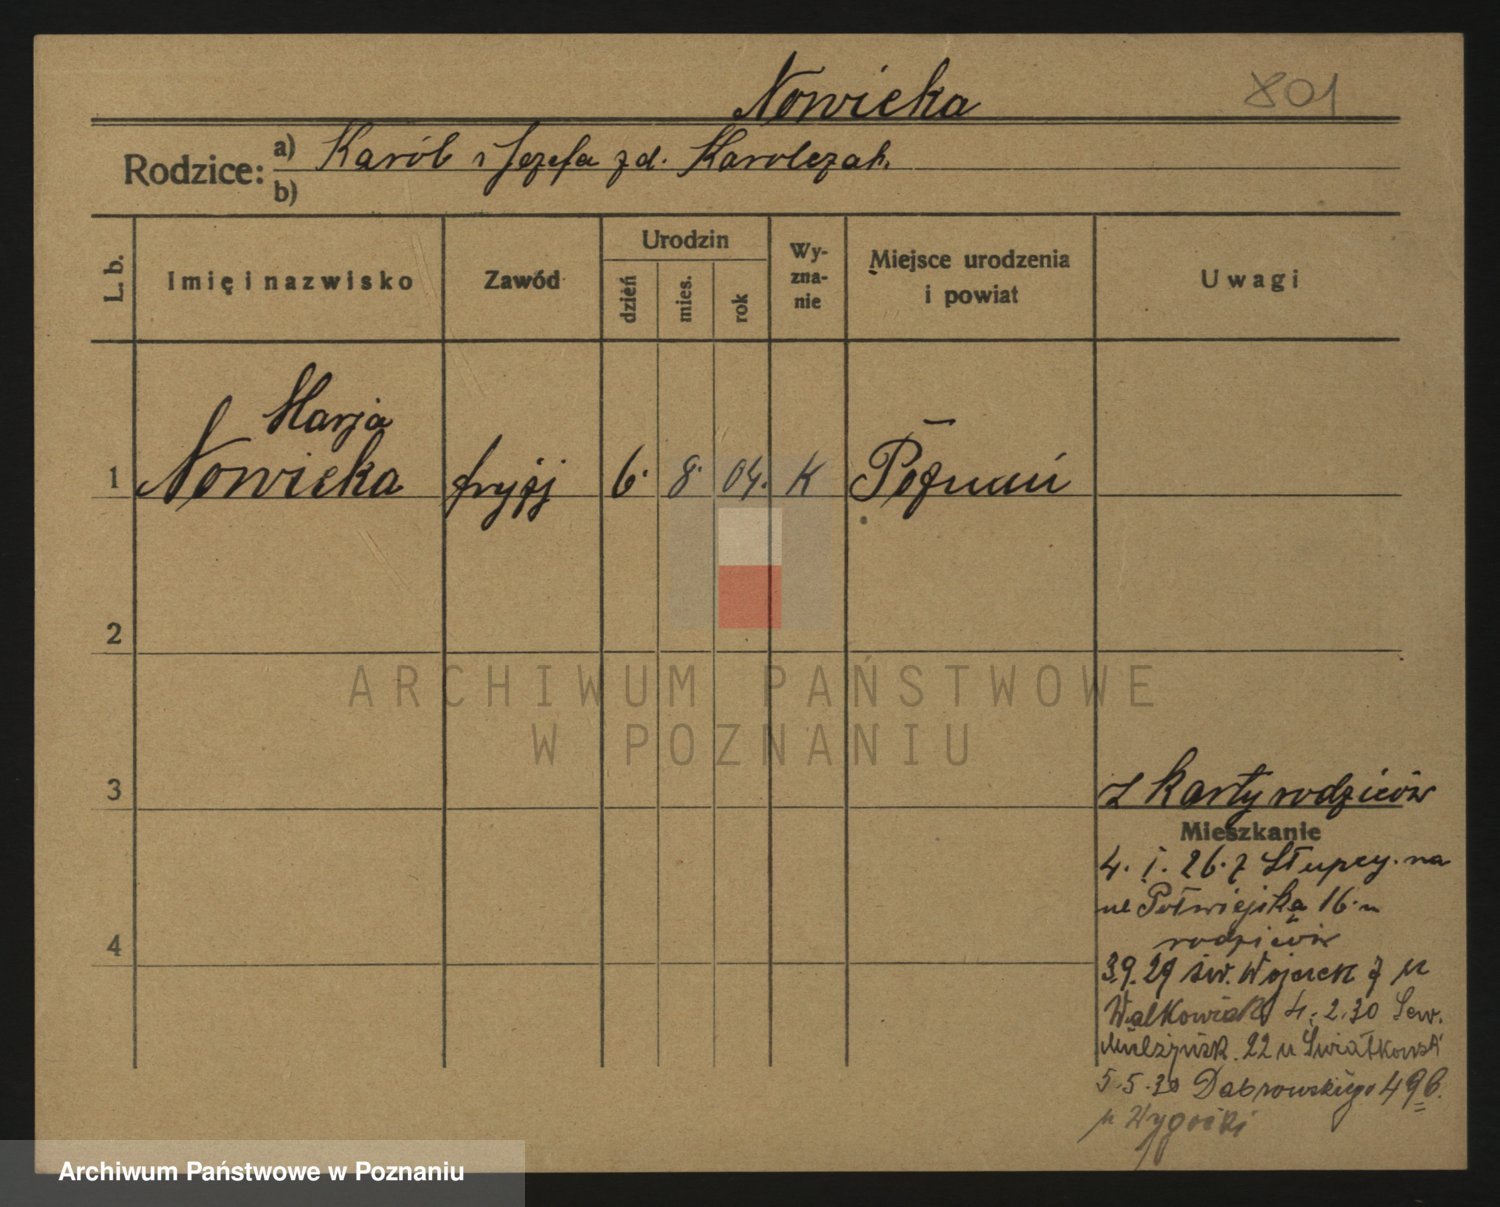 Nowicka
801
Rodzice:
a) Karól i Jozefa zd. Karolczak.
b)
L. b.
Imię i nazwisko
Zawód
Urodzin
dzień
mies.
rok
Wy-
zna-
nie
Miejsce urodzenia
i powiat
Uwagi
Marja
1 Nowicka fryzj 6. 8. 04. K Poznań
2
ARCHIWUM PAŃSTWOWE
W POZNANIU
3
z karty rodziców
Mieszkanie
4. I. 26. z Słupcy. na
ul Półwiejska 16. u
4
rodziców
3.9.29 św. Wojciech 7 u
Walkowiak 4. 2. 30 Sew.
Mielżyńsk. 22 u Świátkowsk
5.5.30 Dabrowskiego 49b.
u Wygocki
Archiwum Państwowe w Poznaniu